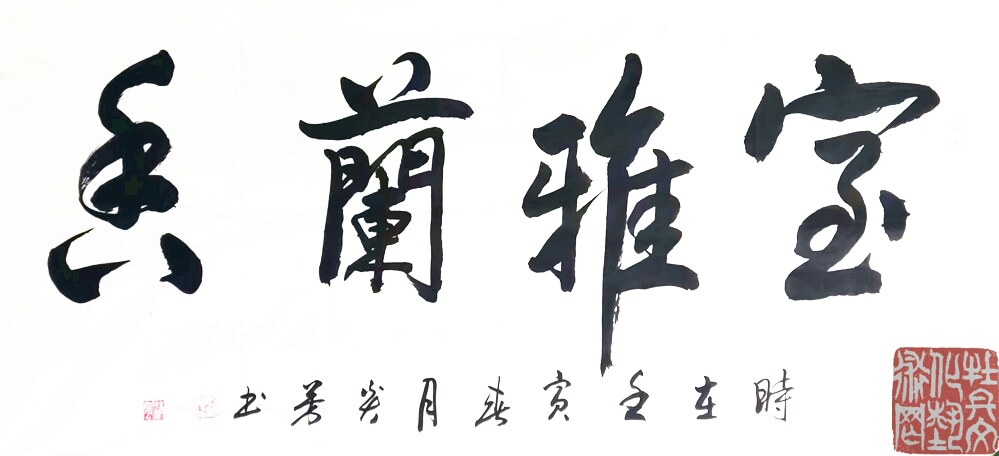 室雅蘭香
時在壬寅春月书